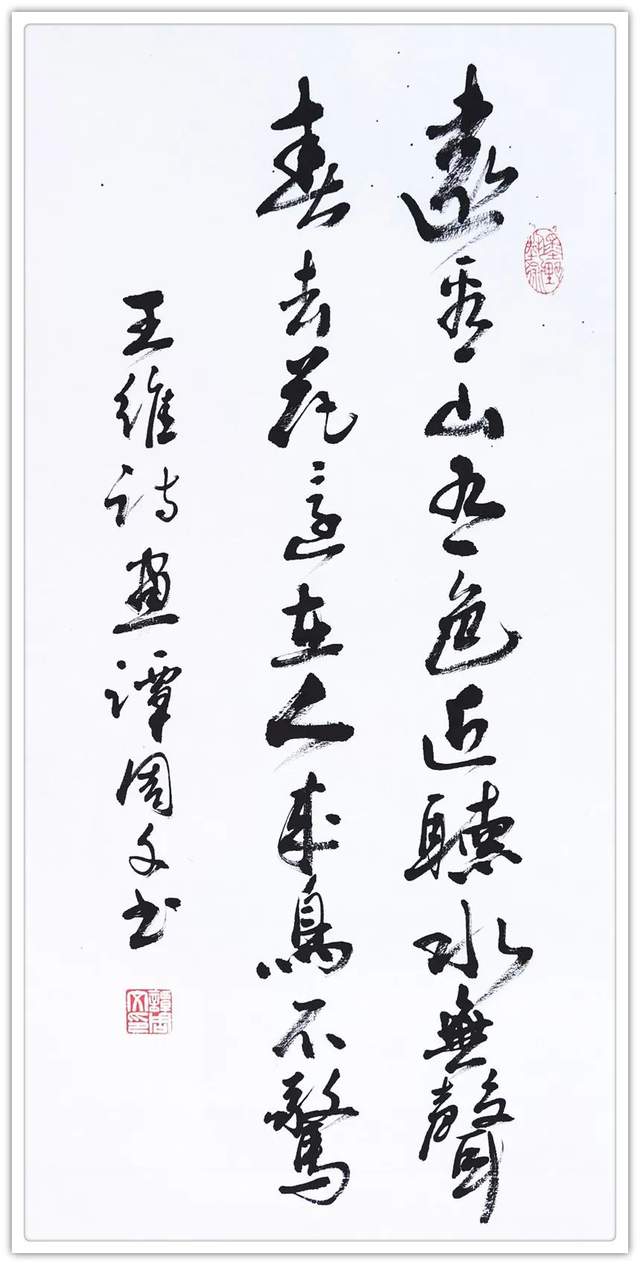 遠看山有色近聽水無聲
春去花還在人來鳥不驚
王維詩畫譚周文书
譚周文印